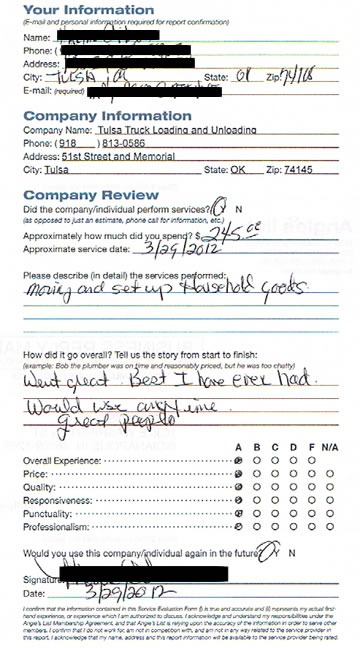 Your Information
(E-mail and personal information required for report confirmation)
Name:
Phone: (
Address:
City: TULSA State: OK Zip:
E-mail: (required)
Company Information
Company Name: Tulsa Truck Loading and Unloading
Phone: (918 ) 813-0586
Address: 51st Street and Memorial
City: Tulsa State: OK Zip: 74145
Company Review
Did the company/individual perform services? Y N
(as opposed to just an estimate, phone call for information, etc.)
Approximately how much did you spend? $ 245.00
Approximate service date: 3/29/2012
Please describe (in detail) the services performed:
moving and set up Household goods.
How did it go overall? Tell us the story from start to finish:
(example: Bob the plumber was on time and reasonably priced, but he was too chatty)
Went great. Best I have ever had.
Would use anytime.
great people
A B C D F N/A
Overall Experience:
Price:
Quality:
Responsiveness:
Punctuality:
Professionalism:
Would you use this company/individual again in the future? Y N
Signature
Date: 3/29/2012
I confirm that the information contained in this Service Evaluation Form (i) is true and accurate and (ii) represents my actual first-
hand experience, or experience which I am authorized to discuss. I acknowledge and understand my responsibilities under the
Angie's List Membership Agreement, and that Angie's List is relying upon the accuracy of the information in order to serve other
members. I confirm that I do not work for, am not in competition with, and am not in any way related to the service provider in
this report. I acknowledge that my name, address and this report information will be available to the service provider being rated.